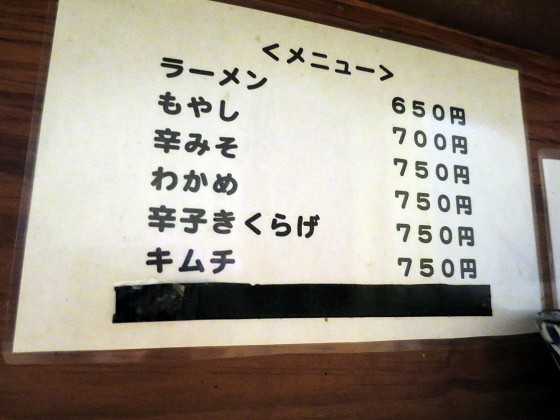 <メニュー>
ラーメン 650円
もやし 700円
辛みそ 750円
わかめ 750円
辛子きくらげ 750円
キムチ 750円